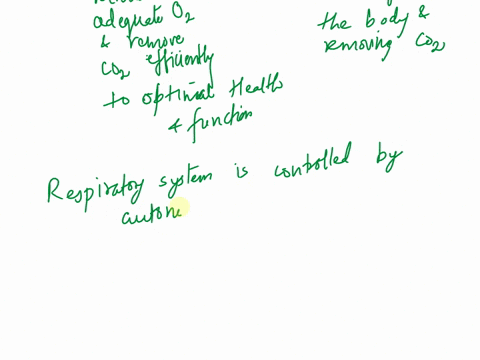 adequate O2
& remove
CO2 efficiently
to optimal Health
& function
the body &
removing CO2
Respiratory system is controlled by
auton